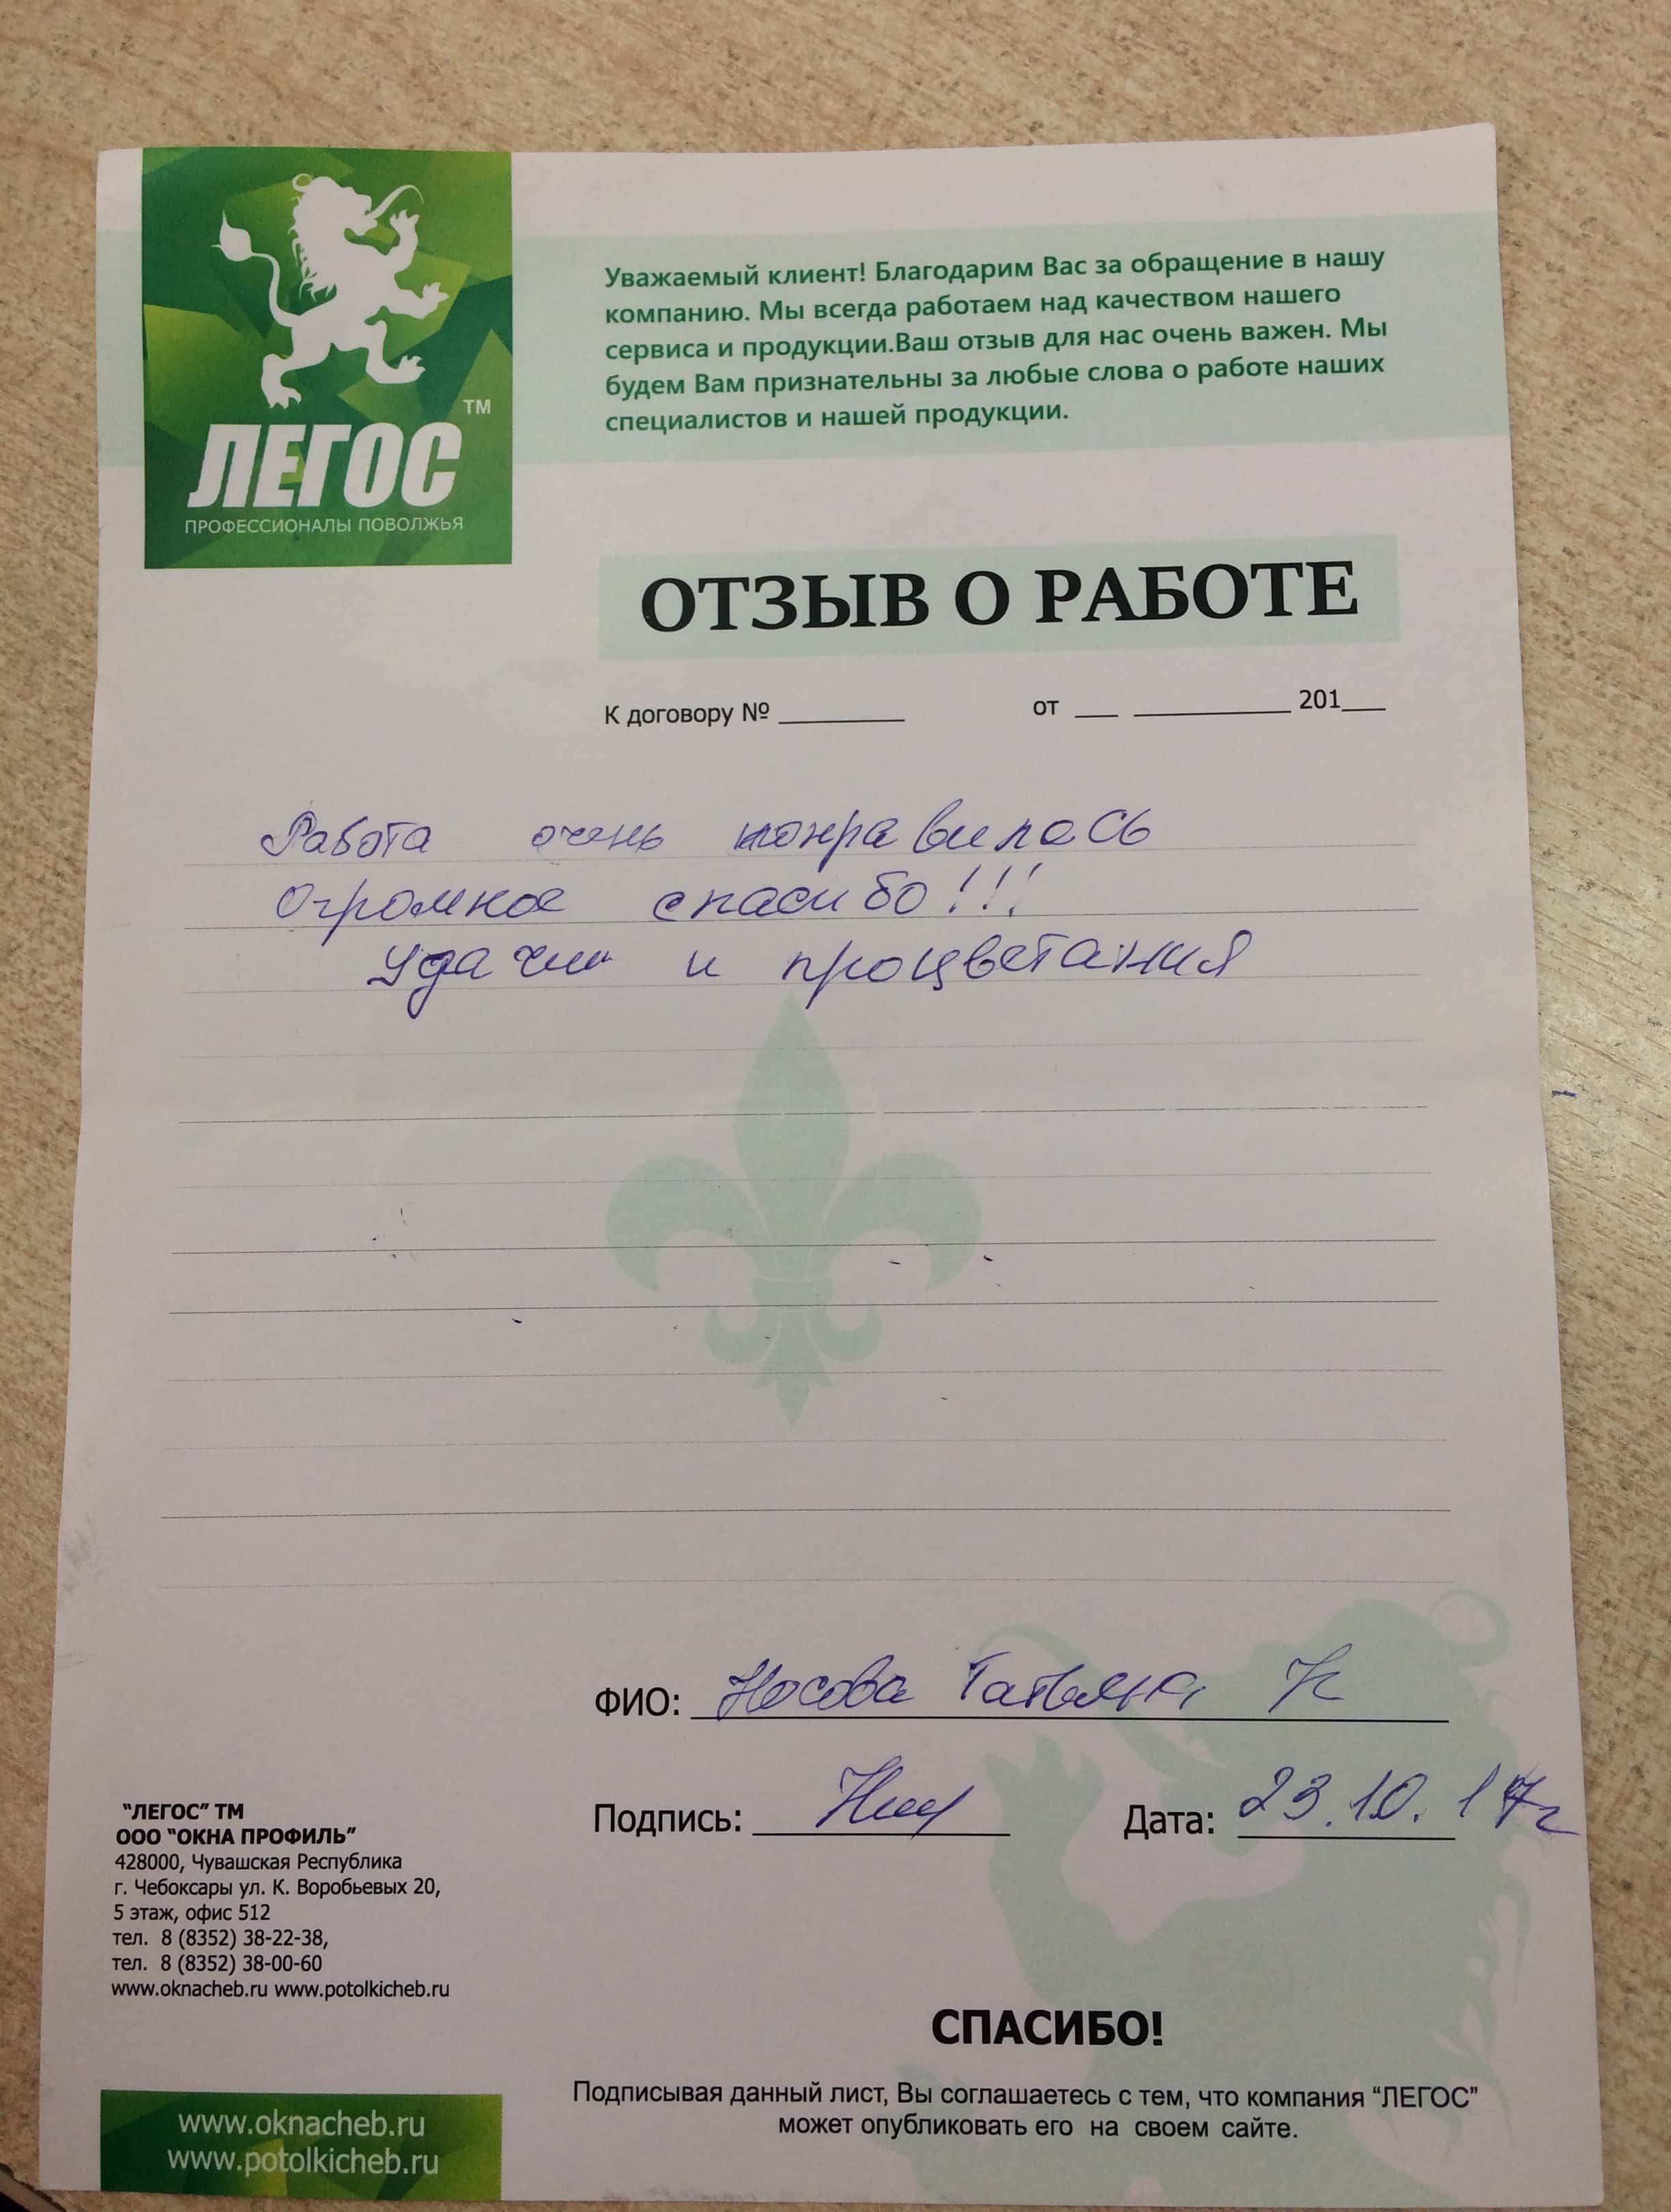 ЛЕГОС
TM
ПРОФЕССИОНАЛЫ ПОВОЛЖЬЯ
Уважаемый клиент! Благодарим Вас за обращение в нашу
компанию. Мы всегда работаем над качеством нашего
сервиса и продукции.Ваш отзыв для нас очень важен. Мы
будем Вам признательны за любые слова о работе наших
специалистов и нашей продукции.
ОТЗЫВ О РАБОТЕ
К договору № ______ от __ ________ 201__
Работа очень понравилось
Огромное спасибо!!!
Удачи и процветания
ФИО: Носова Татьяна
Подпись:
Дата: 23.10.17г
"ЛЕГОС" ТМ
ООО "ОКНА ПРОФИЛЬ"
428000, Чувашская Республика
г. Чебоксары ул. К. Воробьевых 20,
5 этаж, офис 512
тел. 8 (8352) 38-22-38,
тел. 8 (8352) 38-00-60
www.oknacheb.ru www.potolkicheb.ru
СПАСИБО!
Подписывая данный лист, Вы соглашаетесь с тем, что компания "ЛЕГОС"
может опубликовать его на своем сайте.
www.oknacheb.ru
www.potolkicheb.ru